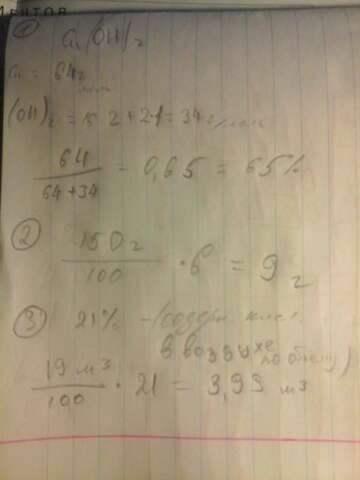 ментов
① Cu(OH)₂
Cu = 64 г/моль
(OH)₂ = 16·2+2·1 = 34 г/моль
64
64+34 = 0,65 = 65%
② 150г
100 · 6 = 9 г
③ 21% - (содерж. кисл.
в воздухе по объему)
19 м³
100 · 21 = 3,99 м³